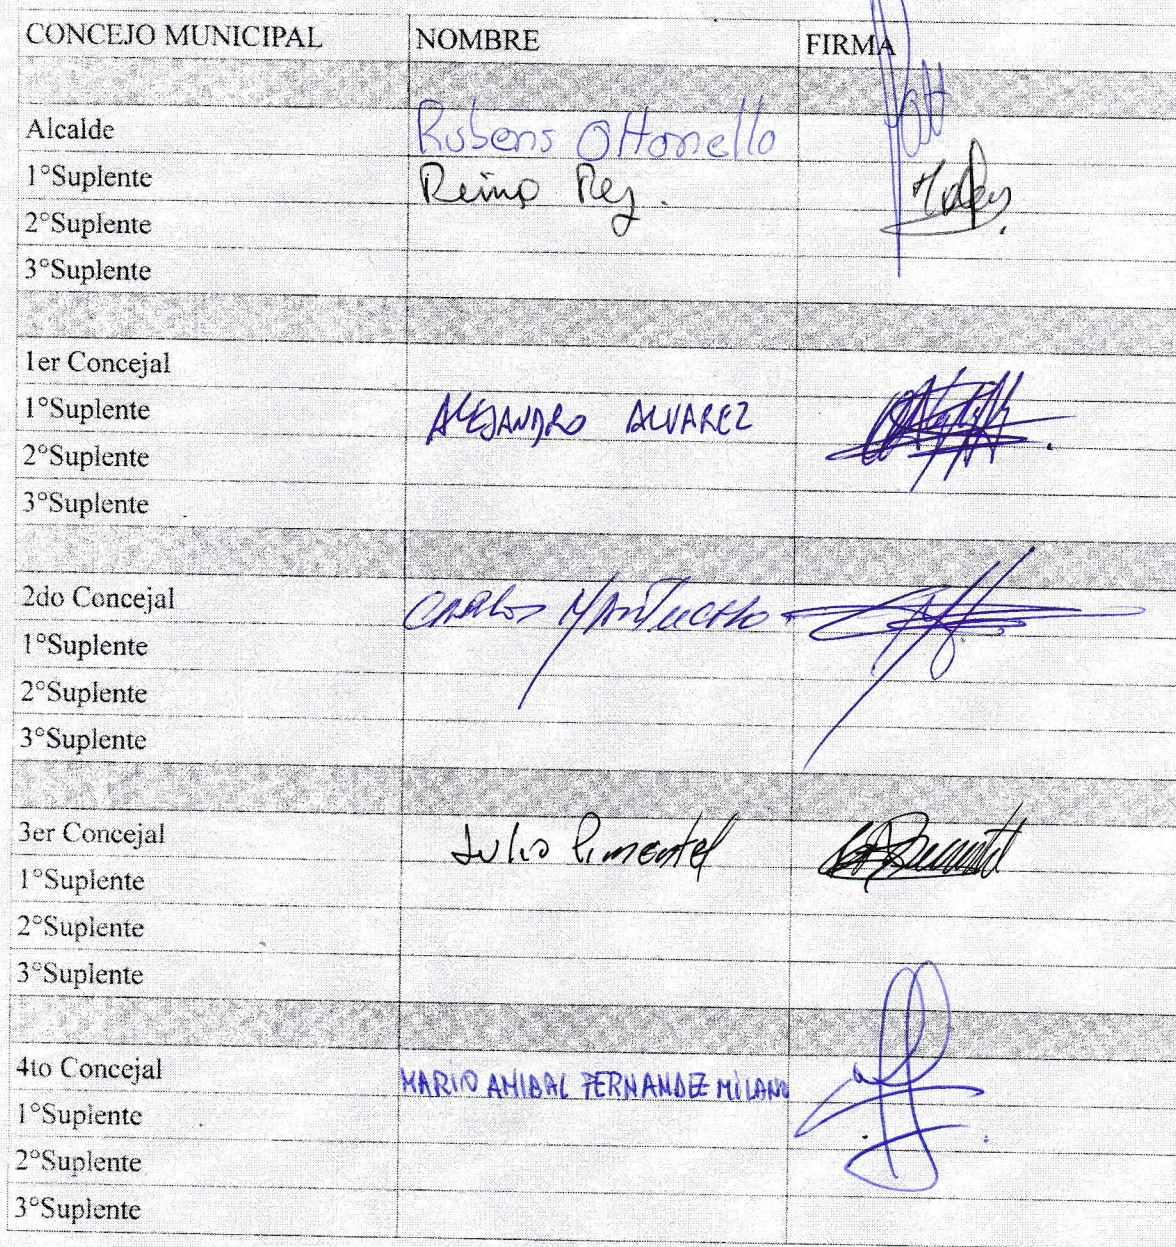 CONCEJO MUNICIPAL NOMBRE FIRMA
Alcalde Rubens Ottonello
1°Suplente Reino Rey.
2°Suplente
3°Suplente
1er Concejal
1°Suplente ALEJANDRO ALVAREZ
2°Suplente
3°Suplente
2do Concejal CARLOS
1°Suplente
2°Suplente
3°Suplente
3er Concejal Julio Pimentel
1°Suplente
2°Suplente
3°Suplente
4to Concejal MARIO ANIBAL FERNANDEZ MILANO
1°Suplente
2°Suplente
3°Suplente